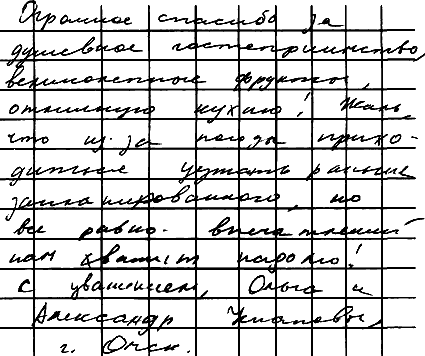 Огромное спасибо за
душевное гостеприимство,
великолепные фрукты,
отличную кухню! Жаль,
что из-за погоды прихо-
дится уезжать раньше
запланированного, но
все равно впечатлений
нам хватит надолго!
С уважением, Ольга и
Александр
г. Омск.